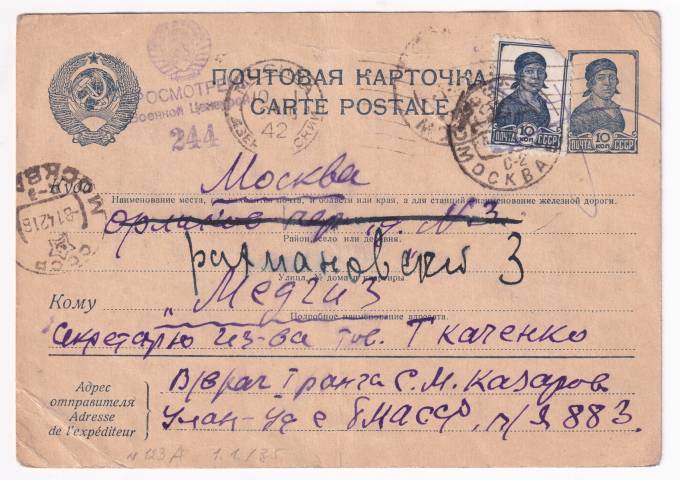 ПОЧТОВАЯ КАРТОЧКА
CARTE POSTALE
ПРОСМОТРЕНО
Военной Цензурой
244
42
10 коп
ПОЧТА СССР
10 коп
ПОЧТА СССР
МОСКВА
МОСКВА
Куда
Москва
Наименование места, где находится почта, и области или края, а для станций наименование железной дороги.
орликов пер. д. №3.
Район, село или деревня.
рахмановский 3
Улица, № дома и квартиры.
Кому
"Медгиз"
Подробное наименование адресата.
Секретарю из-ва тов. Ткаченко
Адрес
отправителя
Adresse
de l'expéditeur
В/врач I ранга С. М. Казаров
Улан-Удэ БМАССР, п/я 883.
N 123A 1.1./85